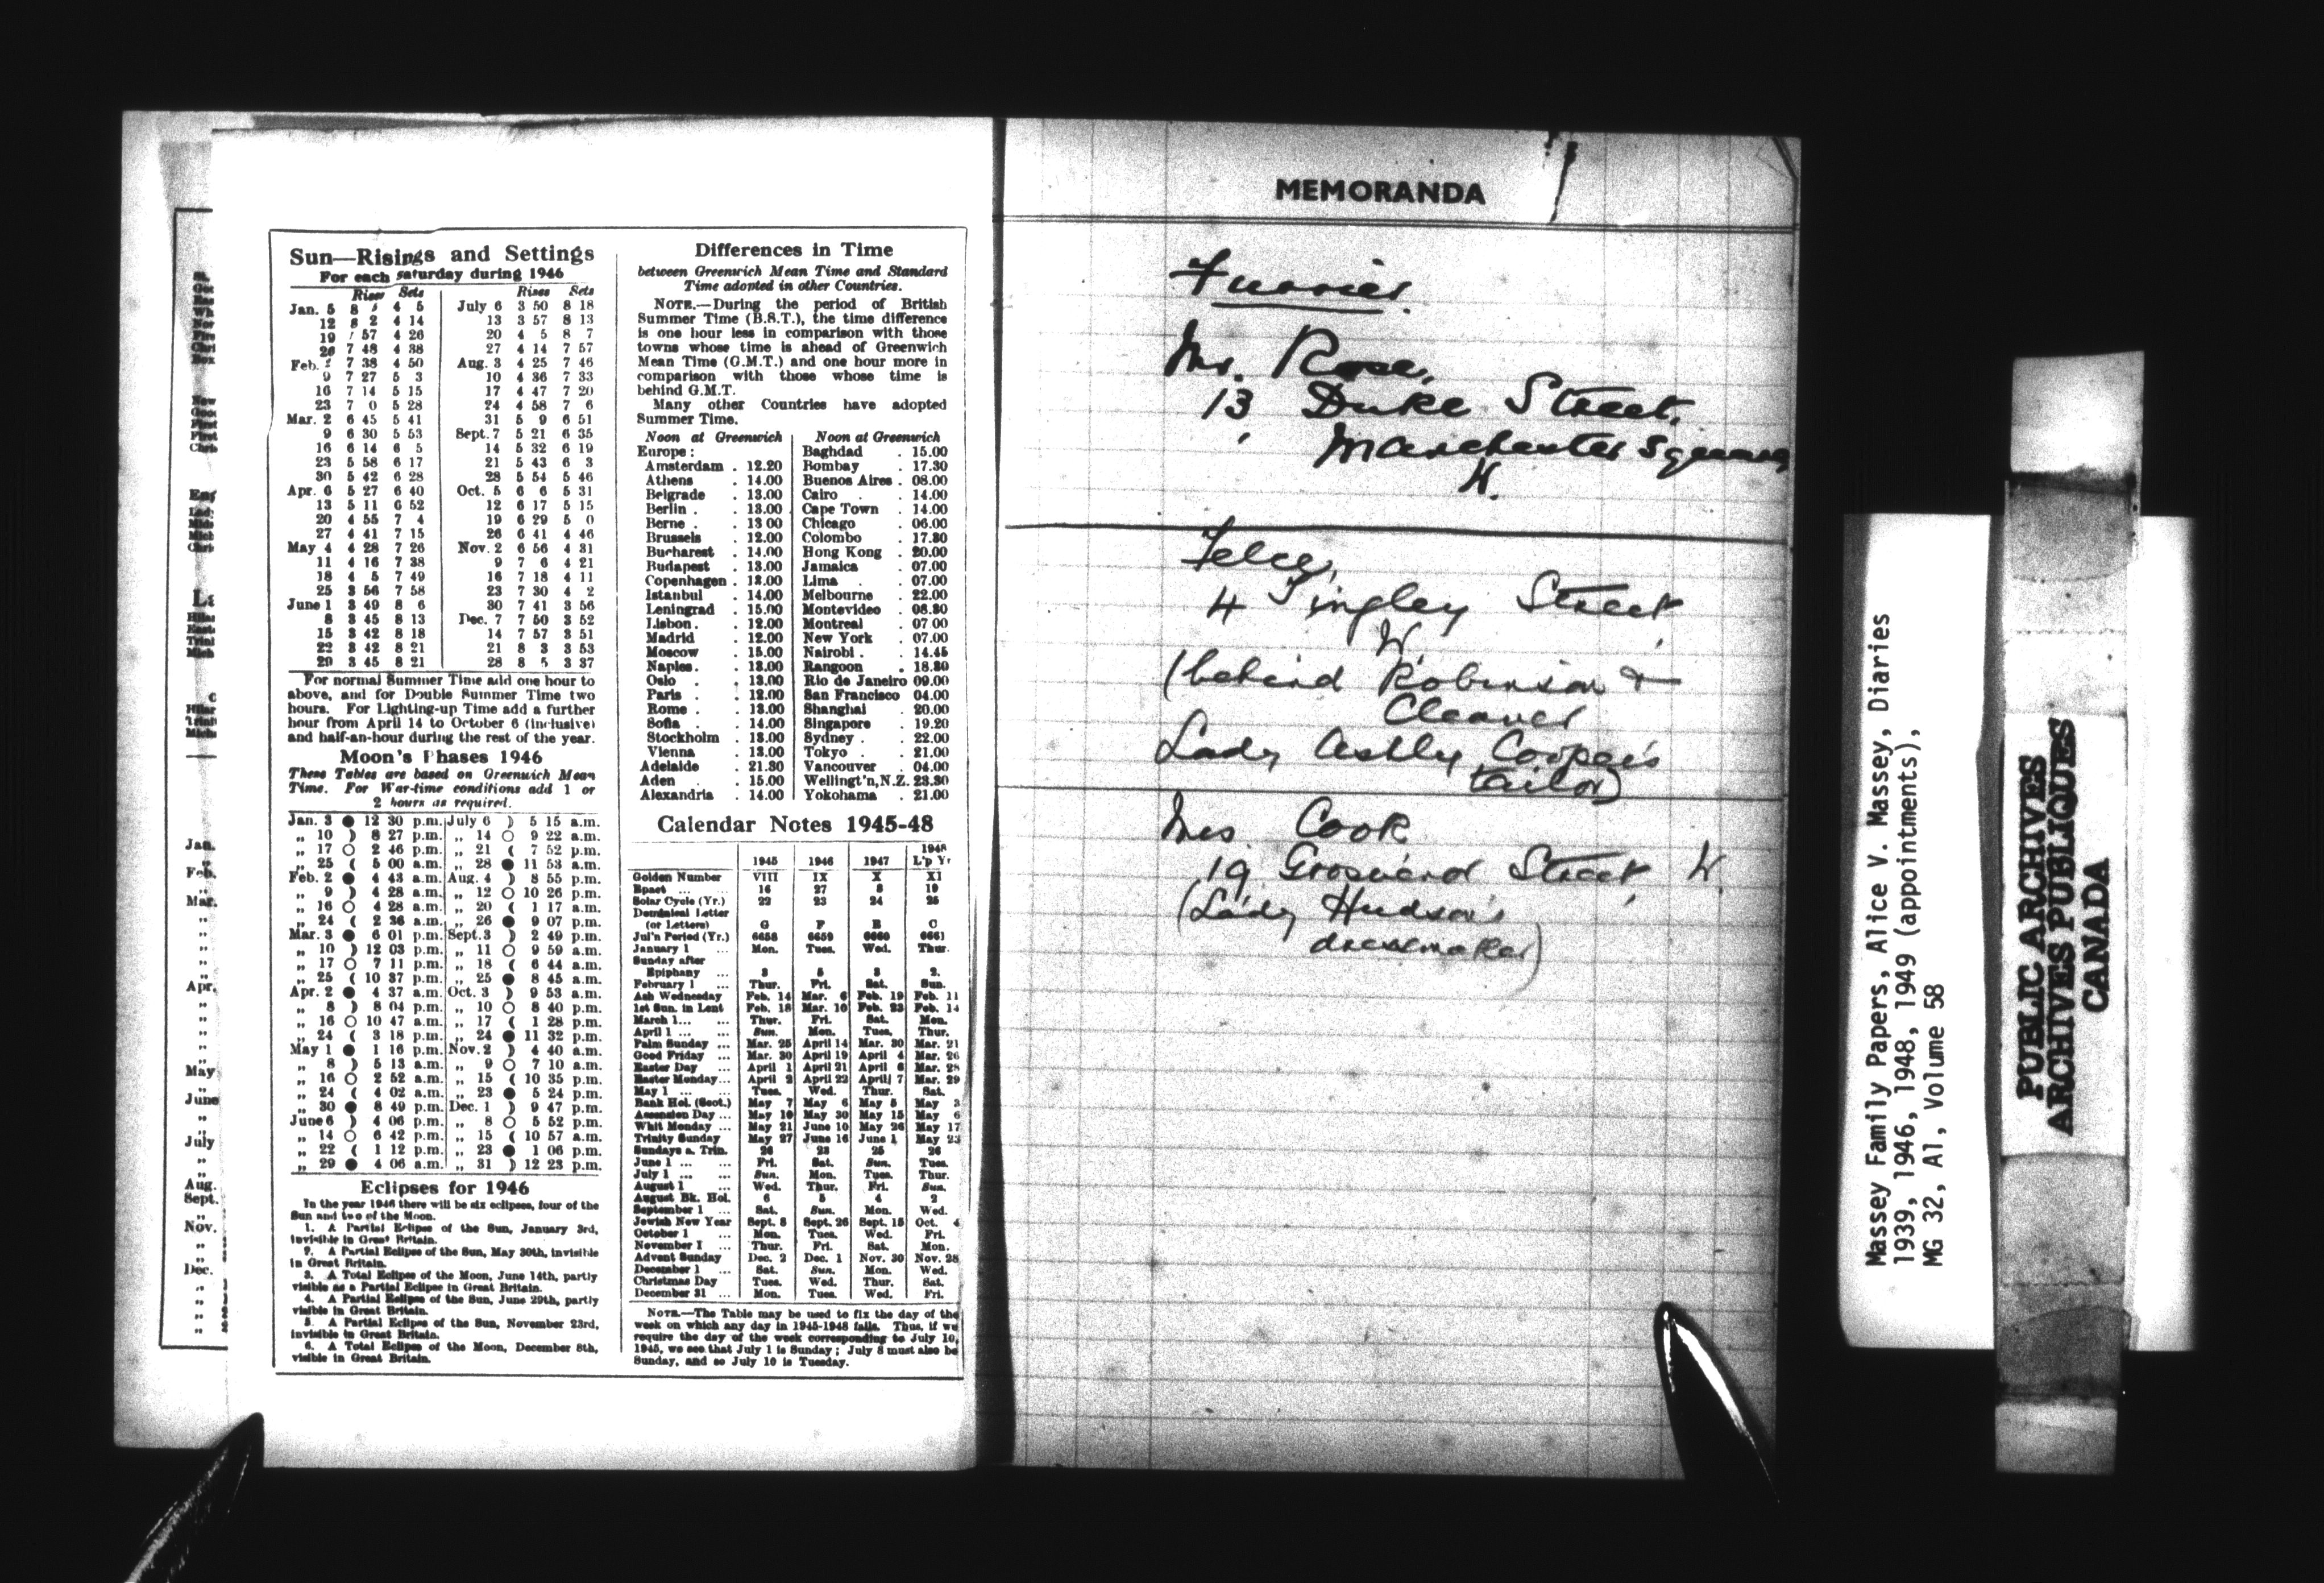 Sun—Risings and Settings
For each Saturday during 1946
Rises Sets
Jan. 5 8 5 4 5
12 8 2 4 14
19 7 57 4 26
26 7 48 4 38
Feb. 2 7 38 4 50
9 7 27 5 3
16 7 14 5 15
23 7 0 5 28
Mar. 2 6 45 5 41
9 6 30 5 53
16 6 14 6 5
23 5 58 6 17
30 5 42 6 28
Apr. 6 5 27 6 40
13 5 11 6 52
20 4 55 7 4
27 4 41 7 15
May 4 4 28 7 26
11 4 16 7 38
18 4 5 7 49
25 3 56 7 58
June 1 3 49 8 6
8 3 45 8 13
15 3 42 8 18
22 3 42 8 21
29 3 45 8 21
Rises Sets
July 6 3 50 8 18
13 3 57 8 13
20 4 5 8 7
27 4 14 7 57
Aug. 3 4 25 7 46
10 4 36 7 33
17 4 47 7 20
24 4 58 7 6
31 5 9 6 51
Sept. 7 5 21 6 35
14 5 32 6 19
21 5 43 6 3
28 5 54 5 46
Oct. 5 6 6 5 31
12 6 17 5 15
19 6 29 5 0
26 6 41 4 46
Nov. 2 6 56 4 31
9 7 6 4 21
16 7 18 4 11
23 7 30 4 2
30 7 41 3 56
Dec. 7 7 50 3 52
14 7 57 3 51
21 8 3 3 53
28 8 5 3 37
For normal Summer Time add one hour to
above, and for Double Summer Time two
hours. For Lighting-up Time add a further
hour from April 14 to October 6 (inclusive)
and half-an-hour during the rest of the year.
Moon's Phases 1946
These Tables are based on Greenwich Mean
Time. For War-time conditions add 1 or
2 hours as required.
Jan. 3 ● 12 30 p.m. July 6 ) 5 15 a.m.
„ 10 ) 8 27 p.m. „ 14 ○ 9 22 a.m.
„ 17 ○ 2 46 p.m. „ 21 ( 7 52 p.m.
„ 25 ( 5 00 a.m. „ 28 ● 11 53 a.m.
Feb. 2 ● 4 43 a.m. Aug. 4 ) 8 55 p.m.
„ 9 ) 4 28 a.m. „ 12 ○ 10 26 p.m.
„ 16 ○ 4 28 a.m. „ 20 ( 1 17 a.m.
„ 24 ( 2 36 a.m. „ 26 ● 9 07 p.m.
Mar. 3 ● 6 01 p.m. Sept. 3 ) 2 49 p.m.
„ 10 ) 12 03 p.m. „ 11 ○ 9 59 a.m.
„ 17 ○ 7 11 p.m. „ 18 ( 6 44 a.m.
„ 25 ( 10 37 p.m. „ 25 ● 8 45 a.m.
Apr. 2 ● 4 37 a.m. Oct. 3 ) 9 53 a.m.
„ 8 ) 8 04 p.m. „ 10 ○ 8 40 p.m.
„ 16 ○ 10 47 a.m. „ 17 ( 1 28 p.m.
„ 24 ( 3 18 p.m. „ 24 ● 11 32 p.m.
May 1 ● 1 16 p.m. Nov. 2 ) 4 40 a.m.
„ 8 ) 5 13 a.m. „ 9 ○ 7 10 a.m.
„ 16 ○ 2 52 a.m. „ 15 ( 10 35 p.m.
„ 24 ( 4 02 a.m. „ 23 ● 5 24 p.m.
„ 30 ● 8 49 p.m. Dec. 1 ) 9 47 p.m.
June 6 ) 4 06 p.m. „ 8 ○ 5 52 p.m.
„ 14 ○ 6 42 p.m. „ 15 ( 10 57 a.m.
„ 22 ( 1 12 p.m. „ 23 ● 1 06 p.m.
„ 29 ● 4 06 a.m. „ 31 ) 12 23 p.m.
Eclipses for 1946
In the year 1946 there will be six eclipses, four of the
Sun and two of the Moon.
1. A Partial Eclipse of the Sun, January 3rd,
invisible in Great Britain.
2. A Partial Eclipse of the Sun, May 30th, invisible
in Great Britain.
3. A Total Eclipse of the Moon, June 14th, partly
visible as a Partial Eclipse in Great Britain.
4. A Partial Eclipse of the Sun, June 29th, partly
visible in Great Britain.
5. A Partial Eclipse of the Sun, November 23rd,
invisible in Great Britain.
6. A Total Eclipse of the Moon, December 8th,
visible in Great Britain.
Differences in Time
between Greenwich Mean Time and Standard
Time adopted in other Countries.
NOTE.—During the period of British
Summer Time (B.S.T.), the time difference
is one hour less in comparison with those
towns whose time is ahead of Greenwich
Mean Time (G.M.T.) and one hour more in
comparison with those whose time is
behind G.M.T.
Many other Countries have adopted
Summer Time.
Noon at Greenwich Noon at Greenwich
Europe: Baghdad . 15.00
Amsterdam . 12.20 Bombay . 17.30
Athens . 14.00 Buenos Aires . 08.00
Belgrade . 13.00 Cairo . 14.00
Berlin . 13.00 Cape Town . 14.00
Berne . 13 00 Chicago . 06.00
Brussels . 12.00 Colombo . 17.30
Bucharest . 14.00 Hong Kong . 20.00
Budapest . 13.00 Jamaica . 07.00
Copenhagen . 13.00 Lima . 07.00
Istanbul . 14.00 Melbourne . 22.00
Leningrad . 15.00 Montevideo . 08.30
Lisbon . 12.00 Montreal . 07 00
Madrid . 12.00 New York . 07.00
Moscow . 15.00 Nairobi . 14.45
Naples . 13.00 Rangoon . 18.30
Oslo . 13.00 Rio de Janeiro 09.00
Paris . 12.00 San Francisco 04.00
Rome . 13.00 Shanghai . 20.00
Sofia . 14.00 Singapore . 19.20
Stockholm . 13.00 Sydney . 22.00
Vienna . 13.00 Tokyo . 21.00
Adelaide . 21.30 Vancouver . 04.00
Aden . 15.00 Wellingt'n, N.Z. 23.30
Alexandria . 14.00 Yokohama . 21.00
Calendar Notes 1945-48
1945 1946 1947 1948 L'p Yr
Golden Number VIII IX X XI
Epact ... 16 27 8 19
Solar Cycle (Yr.) 22 23 24 25
Dominical Letter
(or Letters) G F E C
Jul'n Period (Yr.) 6658 6659 6660 6661
January 1 ... Mon. Tues. Wed. Thur.
Sunday after
Epiphany ... 3 5 3 2.
February 1 ... Thur. Fri. Sat. Sun.
Ash Wednesday Feb. 14 Mar. 6 Feb. 19 Feb. 11
1st Sun. in Lent Feb. 18 Mar. 10 Feb. 23 Feb. 14
March 1... ... Thur. Fri. Sat. Mon.
April 1 ... ... Sun. Mon. Tues. Thur.
Palm Sunday ... Mar. 25 April 14 Mar. 30 Mar. 21
Good Friday ... Mar. 30 April 19 April 4 Mar. 26
Easter Day ... April 1 April 21 April 6 Mar. 28
Easter Monday... April 2 April 22 April 7 Mar. 29
May 1 ... ... Tues. Wed. Thur. Sat.
Bank Hol. (Scot.) May 7 May 6 May 5 May 3
Ascension Day ... May 10 May 30 May 15 May 6
Whit Monday ... May 21 June 10 May 26 May 17
Trinity Sunday May 27 June 16 June 1 May 23
Sundays a. Trin. 26 23 25 26
June 1 ... ... Fri. Sat. Sun. Tues.
July 1 ... ... Sun. Mon. Tues. Thur.
August 1 ... Wed. Thur. Fri. Sun.
August Bk. Hol. 6 5 4 2
September 1 ... Sat. Sun. Mon. Wed.
Jewish New Year Sept. 8 Sept. 26 Sept. 15 Oct. 4
October 1 ... Mon. Tues. Wed. Fri.
November 1 ... Thur. Fri. Sat. Mon.
Advent Sunday Dec. 2 Dec. 1 Nov. 30 Nov. 28
December 1 ... Sat. Sun. Mon. Wed.
Christmas Day Tues. Wed. Thur. Sat.
December 31 ... Mon. Tues. Wed. Fri.
NOTE.—The Table may be used to fix the day of the
week on which any day in 1945-1948 falls. Thus, if we
require the day of the week corresponding to July 10,
1945, we see that July 1 is Sunday; July 8 must also be
Sunday, and so July 10 is Tuesday.
MEMORANDA
Furrier.
Mr. Rose,
13 Duke Street,
Manchester Square
W.
4 Tingley Street
W.
(behind Robinson +
Cleaver
Lady Astley Cooper's
tailor)
Mrs Cook
19 Grosvenor Street, W.
(Lady Hudson's
dressmaker)
Massey Family Papers, Alice V. Massey, Diaries
1939, 1946, 1948, 1949 (appointments),
MG 32, A1, Volume 58
PUBLIC ARCHIVES
ARCHIVES PUBLIQUES
CANADA
Jan.
Feb.
Mar.
Apr.
May
June
July
Aug.
Sept.
Nov.
Dec.